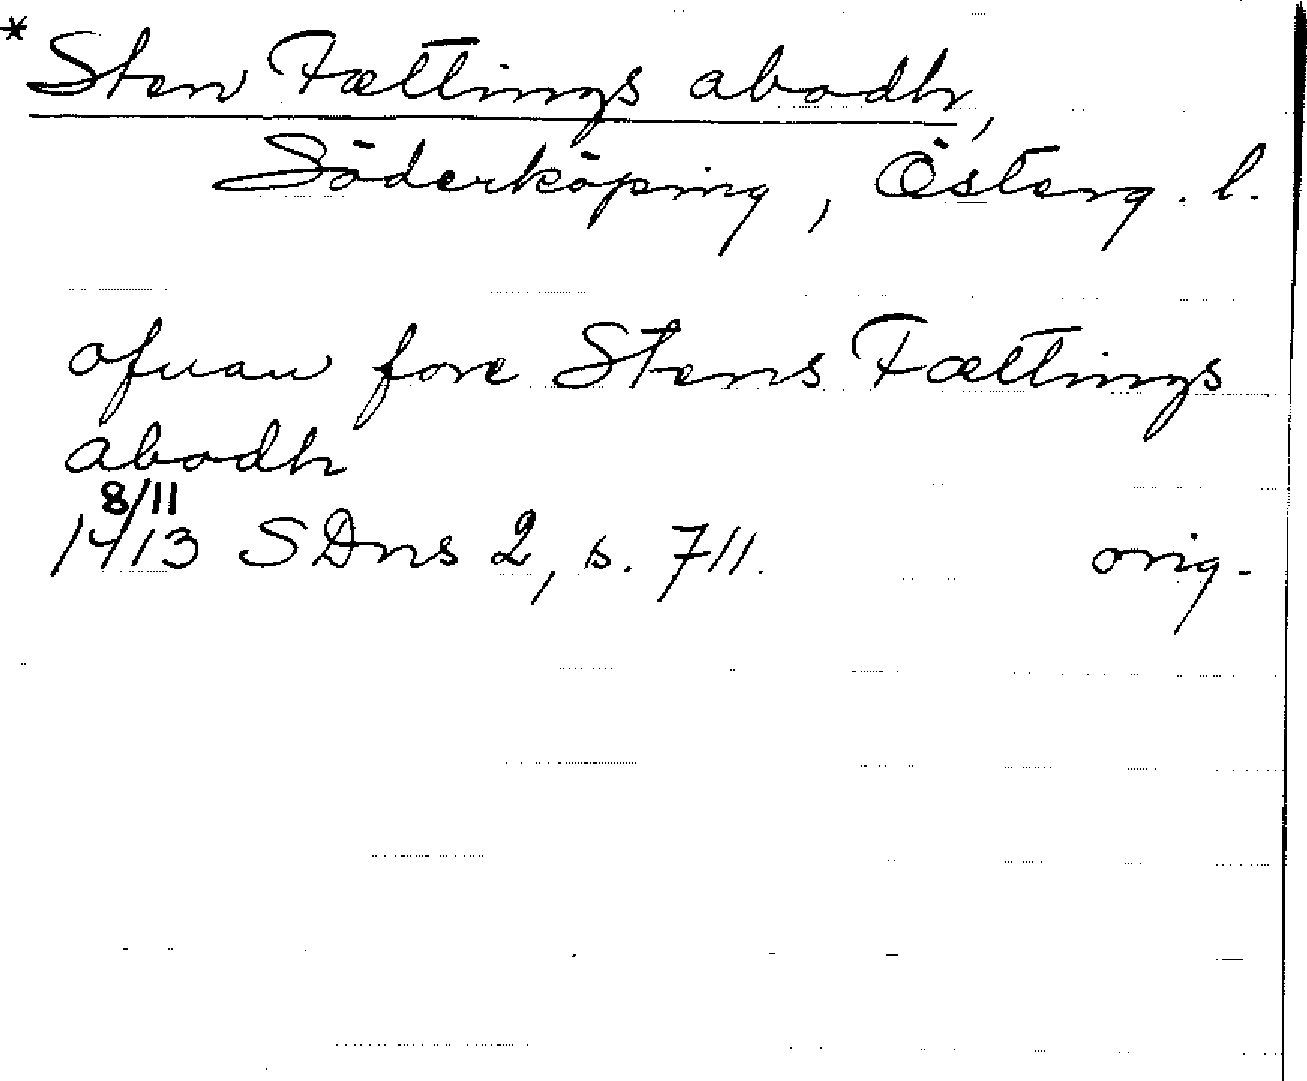 * Sten Fættings abodh,
Söderköping, Österg. l.
ofuan fore Stens Fættings
abodh
8/11
1413 SDns 2, s. 711. orig.